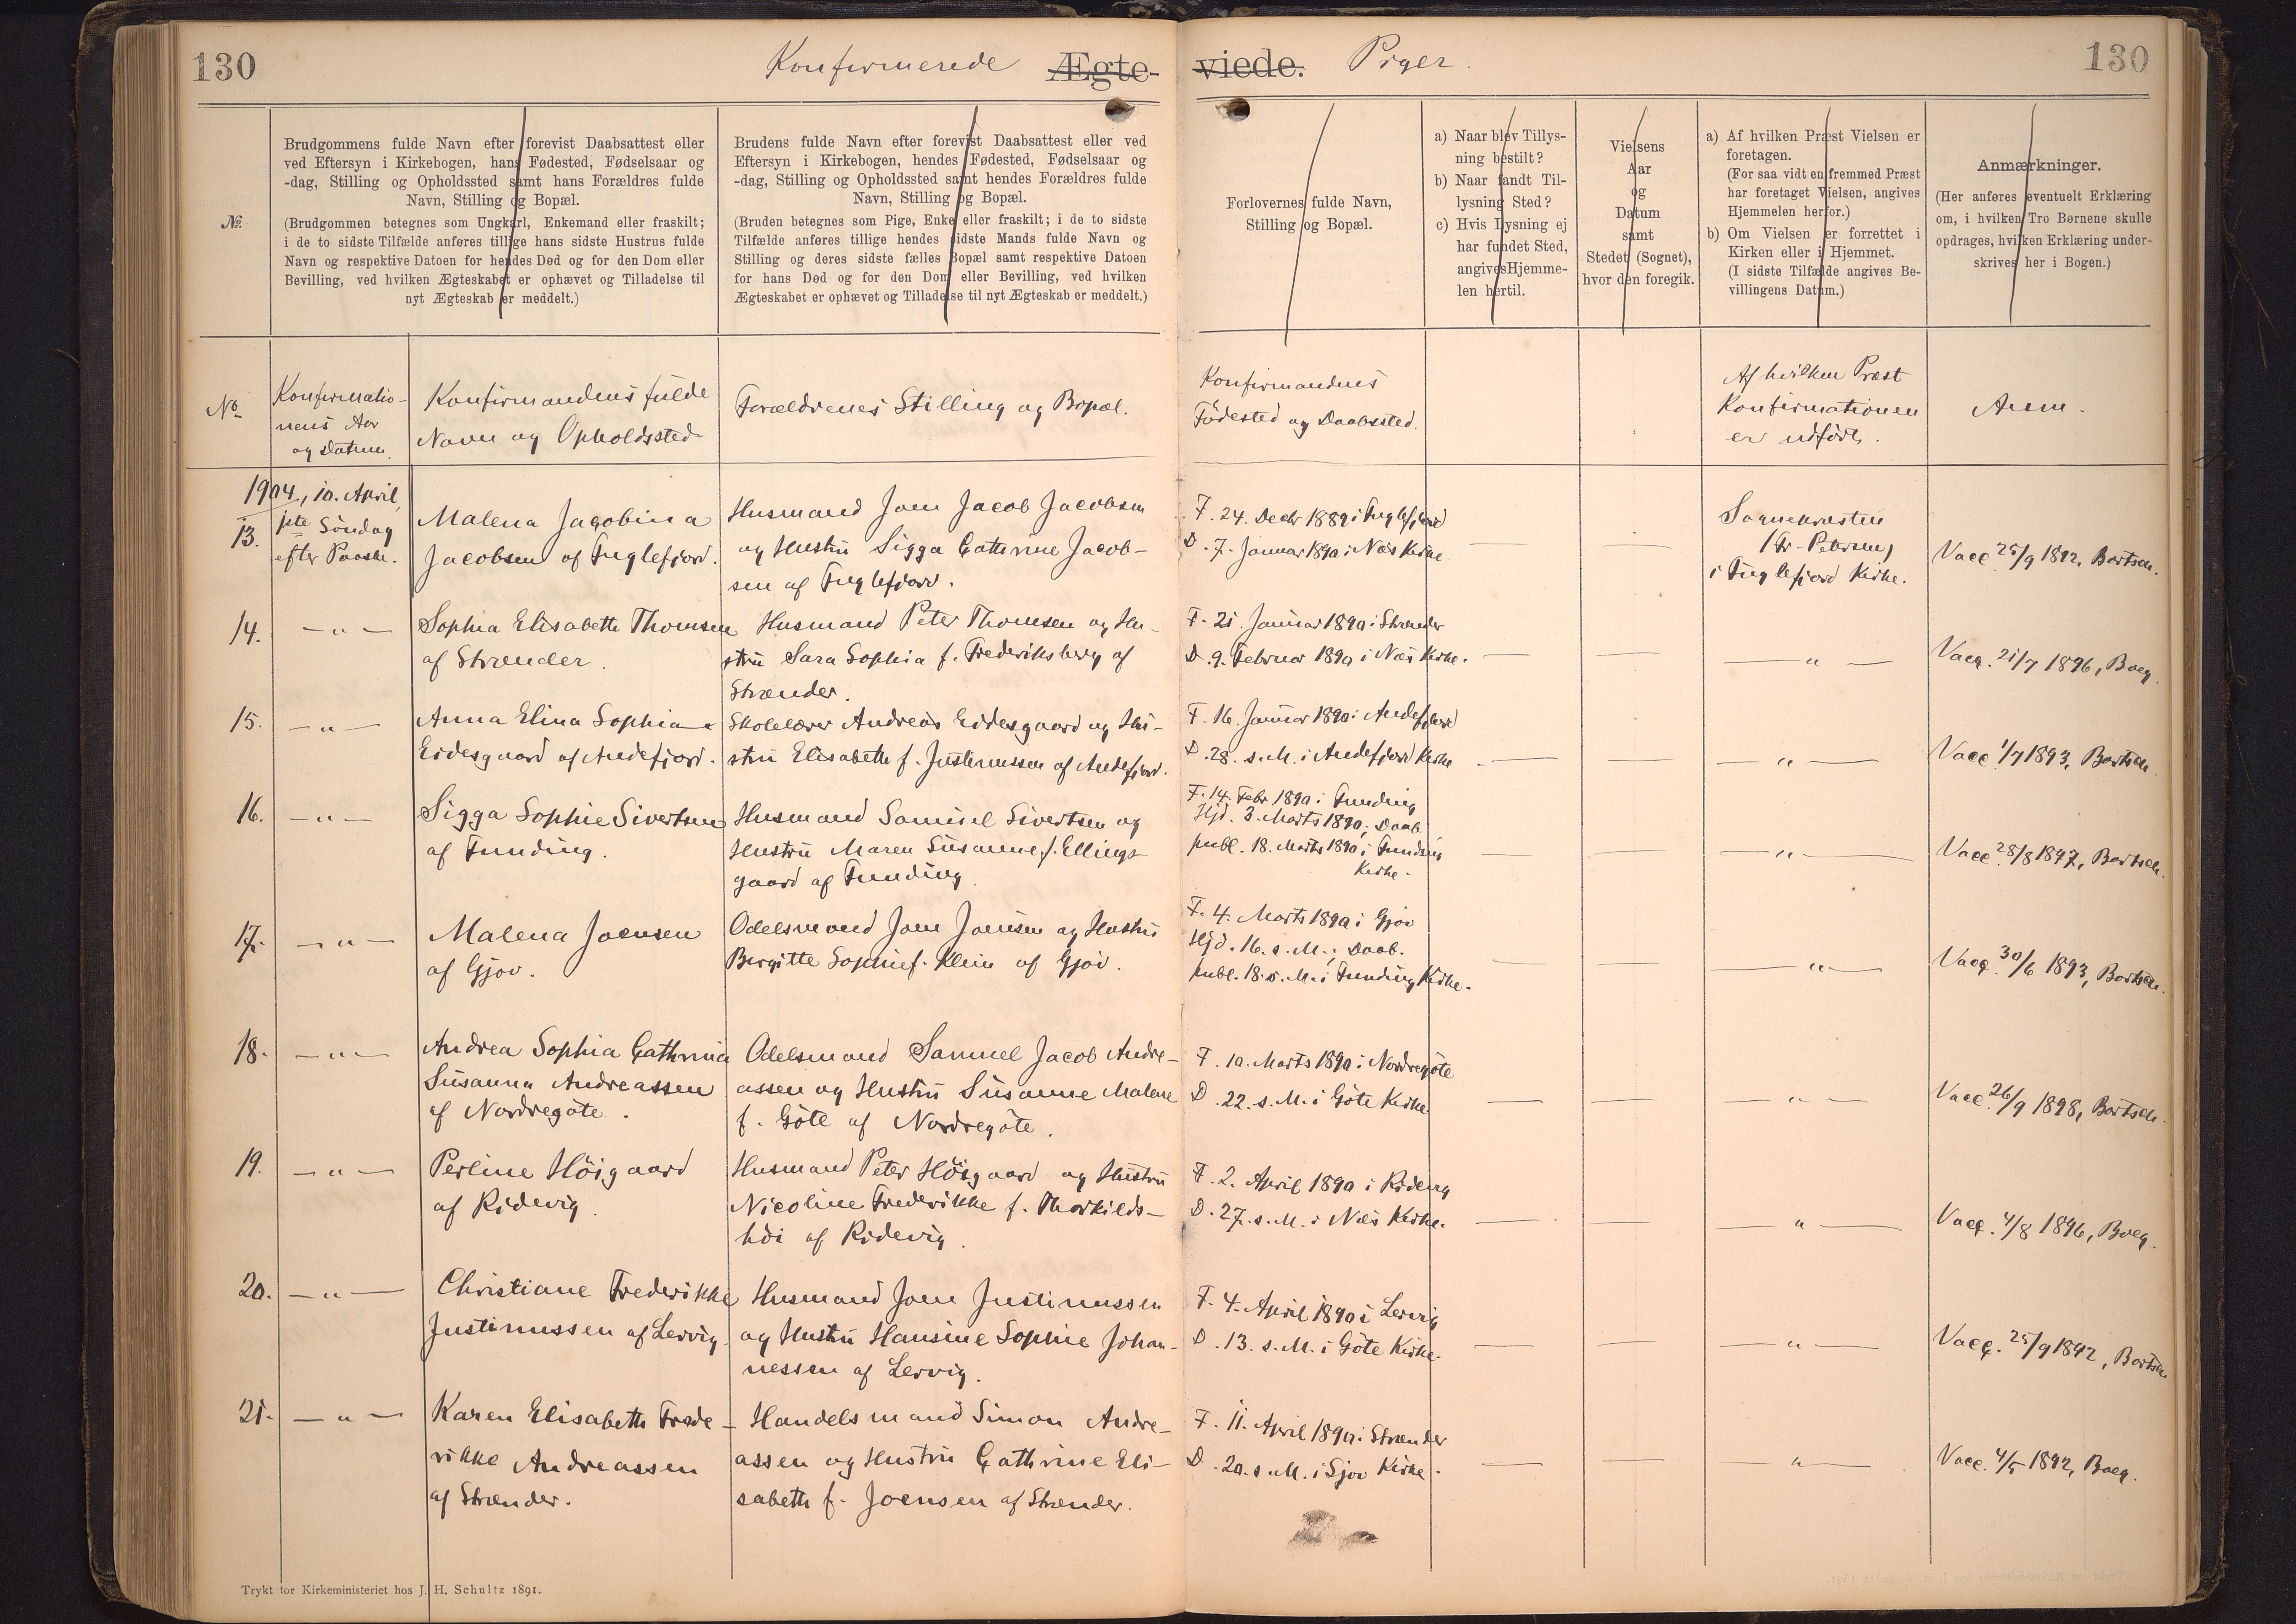 130
Konfirmerede Ægte-
viede. Piger.
130
№.
Brudgommens fulde Navn efter forevist Daabsattest eller
ved Eftersyn i Kirkebogen, hans Fødested, Fødselsaar og
-dag, Stilling og Opholdssted samt hans Forældres fulde
Navn, Stilling og Bopæl.
(Brudgommen betegnes som Ungkarl, Enkemand eller fraskilt;
i de to sidste Tilfælde anføres tillige hans sidste Hustrus fulde
Navn og respektive Datoen for hendes Død og for den Dom eller
Bevilling, ved hvilken Ægteskabet er ophævet og Tilladelse til
nyt Ægteskab er meddelt.)
Brudens fulde Navn efter forevist Daabsattest eller ved
Eftersyn i Kirkebogen, hendes Fødested, Fødselsaar og
-dag, Stilling og Opholdssted samt hendes Forældres fulde
Navn, Stilling og Bopæl.
(Bruden betegnes som Pige, Enke eller fraskilt; i de to sidste
Tilfælde anføres tillige hendes sidste Mands fulde Navn og
Stilling og deres sidste fælles Bopæl samt respektive Datoen
for hans Død og for den Dom eller Bevilling, ved hvilken
Ægteskabet er ophævet og Tilladelse til nyt Ægteskab er meddelt.)
Forlovernes fulde Navn,
Stilling og Bopæl.
a) Naar blev Tillys-
ning bestilt?
b) Naar fandt Til-
lysning Sted?
c) Hvis Lysning ej
har fundet Sted,
angives Hjemme-
len hertil.
Vielsens
Aar
og
Datum
samt
Stedet (Sognet),
hvor den foregik.
a) Af hvilken Præst Vielsen er
foretagen.
(For saa vidt en fremmed Præst
har foretaget Vielsen, angives
Hjemmelen herfor.)
b) Om Vielsen er forrettet i
Kirken eller i Hjemmet.
(I sidste Tilfælde angives Be-
villingens Datum.)
Anmærkninger.
(Her anføres eventuelt Erklæring
om, i hvilken Tro Børnene skulle
opdrages, hvilken Erklæring under-
skrives her i Bogen.)
No
Konfirmatio-
nens Aar
og Datum.
Konfirmandens fulde
Navn og Opholdssted
Forældrenes Stilling og Bopæl.
Konfirmandens
Födested og Daabssted.
Af hvilken Præst
Konfirmationen
er udført.
Anm.
1904, 10. April,
13.
1ste Söndag
efter Paaske.
Malena Jagobina
Jacobsen af Fuglefjord.
Husmand Joen Jacob Jacobsen
og Hustru Sigga Cathrine Jacob-
sen af Fuglefjord.
F. 24. Decbr 1889 i Fuglefjord
D. 7. Januar 1890 i Næs Kirke
Sognepræsten
(Fr. Petersen)
i Fuglefjord Kirke.
Vacc. 25/9 1892, Bærtsen.
14. — " —
Sophia Elisabeth Thomsen
af Strænder.
Husmand Peter Thomsen og Hu-
stru Sara Sophia f. Frederiksberg af
Strænder.
F. 21. Januar 1890 i Strænder
D. 9. Februar 1890 i Næs Kirke.
— " —
Vacc. 21/7 1896, Boeg.
15. — " —
Anna Elina Sophia
Eidesgaard af Andefjord.
Skolelærer Andreas Eidesgaard og Hu-
stru Elisabeth f. Justinussen af Andefjord.
F. 16. Januar 1890 i Andefjord
D. 28. s. M. i Andefjord Kirke
— " —
Vacc. 1/7 1893, Bærtsen.
16. — " —
Sigga Sophie Sivertsen
af Funding.
Husmand Samuel Sivertsen og
Hustru Maren Susanne f. Ellings-
gaard af Funding
F. 14. Febr 1890 i Funding
Hjd. 3. Marts 1890; Daab.
publ. 18. Marts 1890 i Funding
Kirke.
— " —
Vacc. 28/8 1897, Bærtsen.
17. — " —
Malena Joensen
af Gjov.
Odelsmand Joen Joensen og Hustru
Birgitte Sophie f. Klein af Gjov.
F. 4. Marts 1890 i Gjov
Hjd. 16. s. M.; Daab.
publ. 18. s. M. i Funding Kirke.
— " —
Vacc. 30/6 1893, Bærtsen.
18. — " —
Andrea Sophia Cathrina
Susanna Andreassen
af Nordregöte.
Odelsmand Samuel Jacob Andre-
assen og Hustru Susanne Malene
f. Göte af Nordregöte.
F. 10. Marts 1890 i Nordregöte
D. 22. s. M. i Göte Kirke.
— " —
Vacc. 26/9 1898, Bærtsen.
19. — " —
Perline Höigaard
af Ridevig.
Husmand Peter Höigaard og Hustru
Nicoline Frederikke f. Thorkilds-
höi af Ridevig.
F. 2. April 1890 i Ridevig
D. 27. s. M. i Næs Kirke.
— " —
Vacc. 4/8 1896, Boeg.
20. — " —
Christiane Frederikke
Justinussen af Lervig.
Husmand Joen Justinussen
og Hustru Hansine Sophie Johan-
nessen af Lervig.
F. 4. April 1890 i Lervig
D. 13. s. M. i Göte Kirke.
— " —
Vacc. 25/9 1892, Bærtsen
21. — " —
Karen Elisabeth Frede-
rikke Andreassen
af Strænder.
Handelsmand Simon Andre-
assen og Hustru Cathrine Eli-
sabeth f. Joensen af Strænder.
F. 11. April 1890 i Strænder
D. 20. s. M. i Sjov Kirke.
— " —
Vacc. 4/5 1892, Boeg.
Trykt for Kirkeministeriet hos J. H. Schultz 1891.